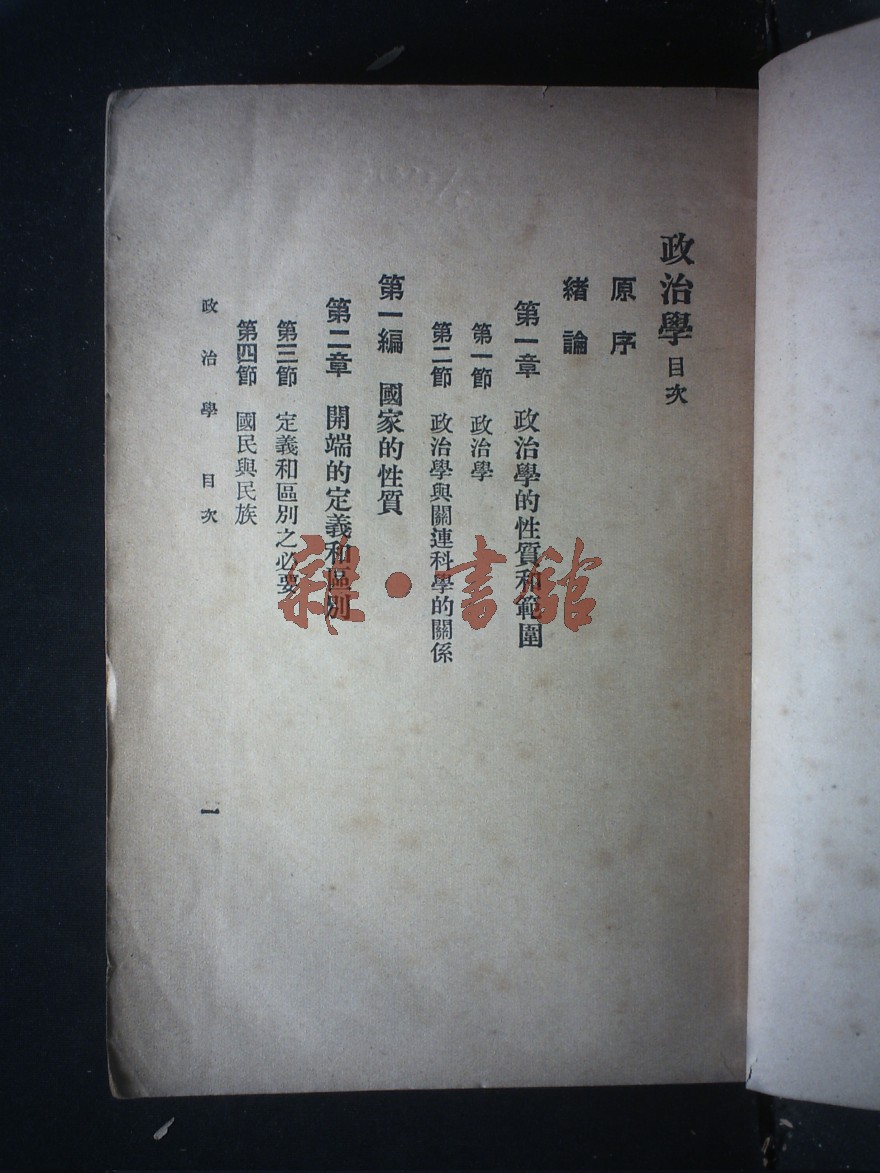 政治學目次
原序
緒論
第一章 政治學的性質和範圍
第一節 政治學
第二節 政治學與關連科學的關係
第一編 國家的性質
第二章 開端的定義和區別
第三節 定義和區別之必要
第四節 國民與民族
政治學 目次
一
雜·書館